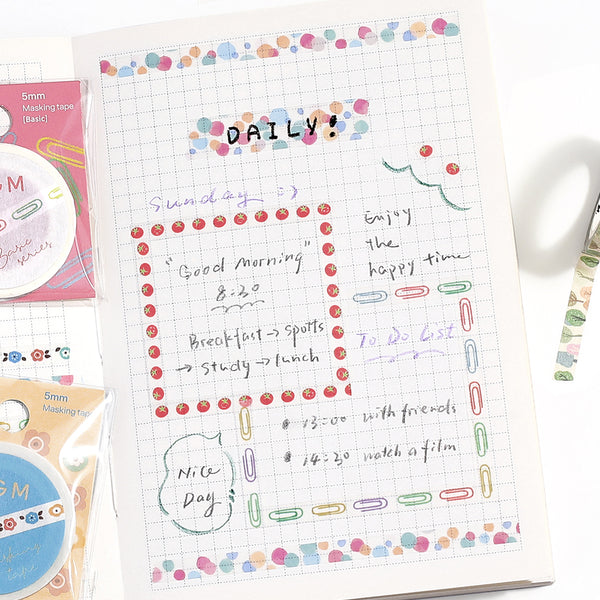 DAILY!
Sunday :)
"Good Morning"
8:30
Breakfast → spotts
→ study → lunch
Enjoy
the
happy time
To Do List
13:00 with friends
14:30 watch a film
Nice
Day
5mm
Masking tape
[Basic]
GM
Base
series
5mm
Masking tape
GM
tape